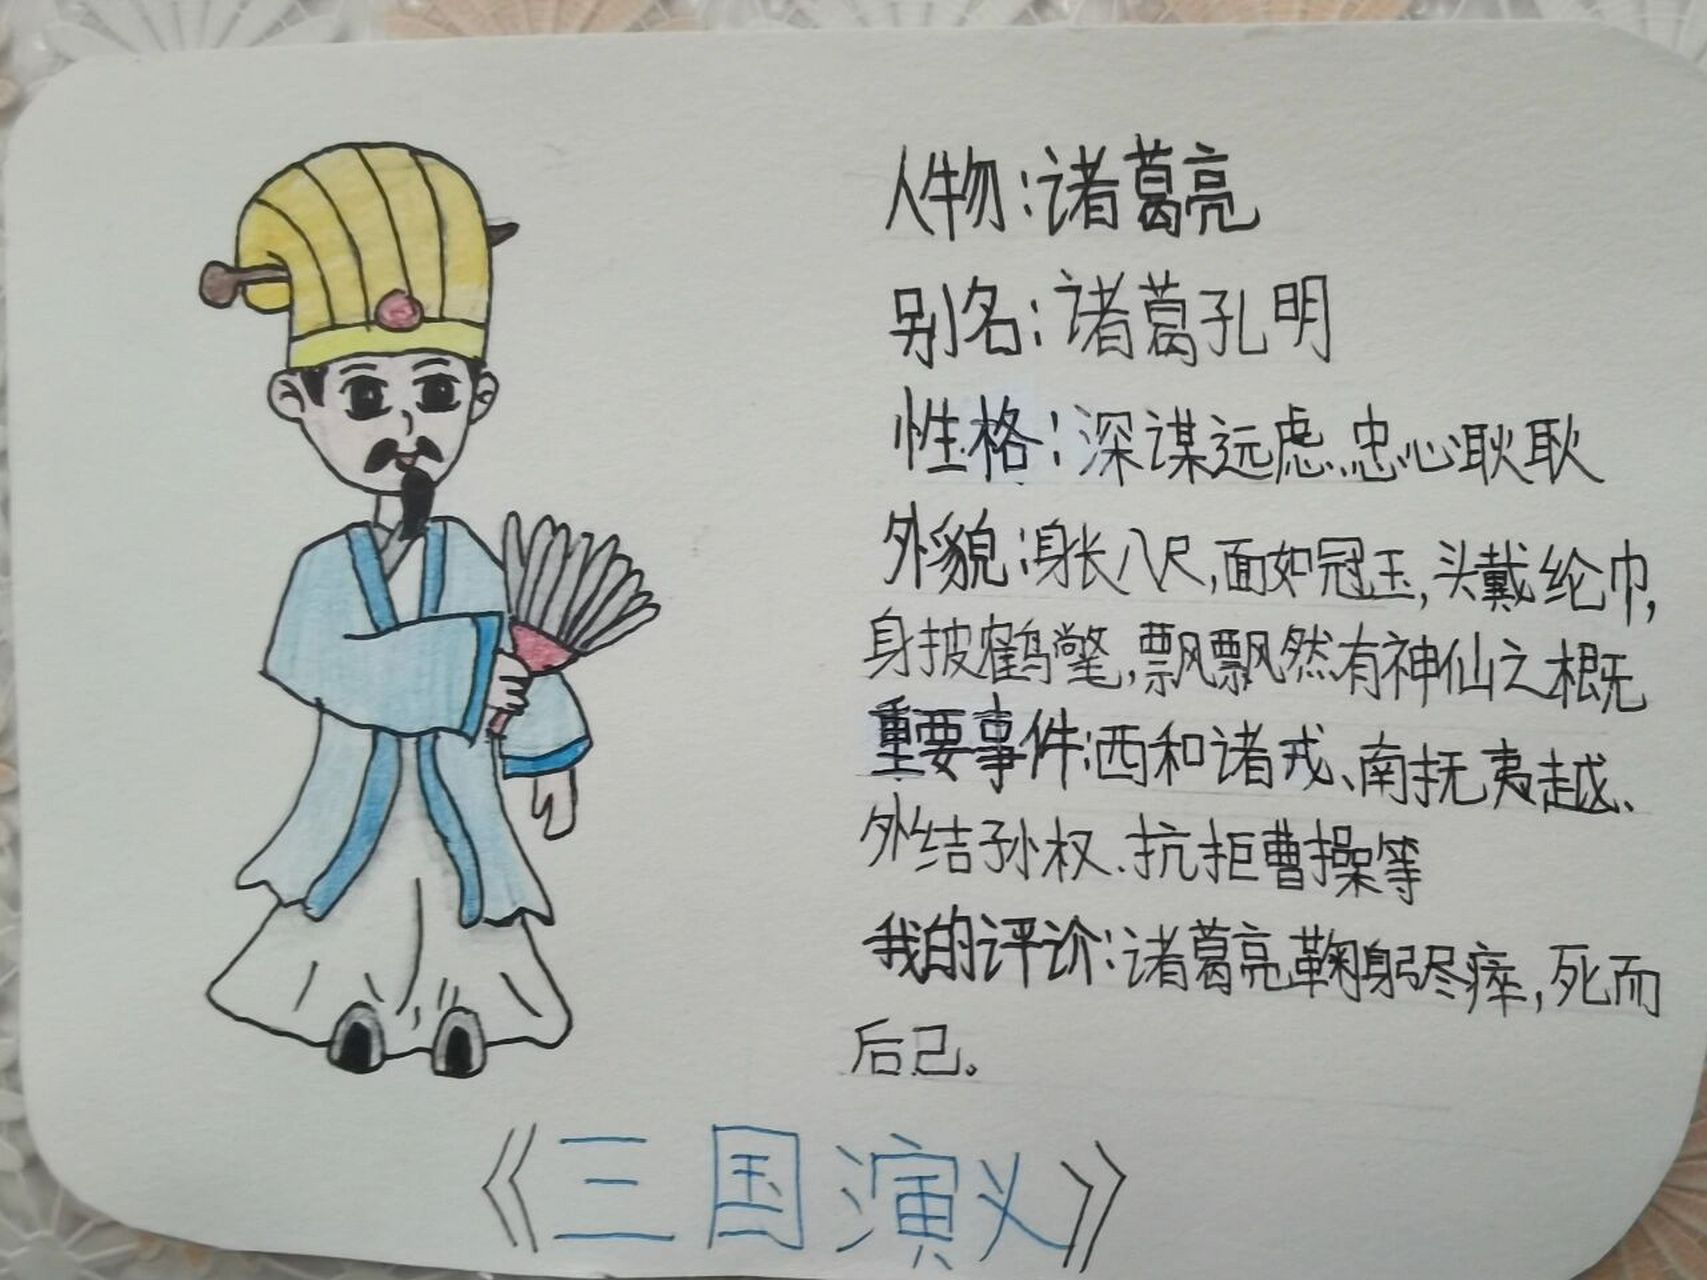 人物:诸葛亮
别名:诸葛孔明
性格:深谋远虑、忠心耿耿
外貌:身长八尺,面如冠玉,头戴纶巾,
身披鹤氅,飘飘然有神仙之概
重要事件:西和诸戎、南抚夷越、
外结孙权、抗拒曹操等
我的评价:诸葛亮鞠躬尽瘁,死而
后已。
《三国演义》